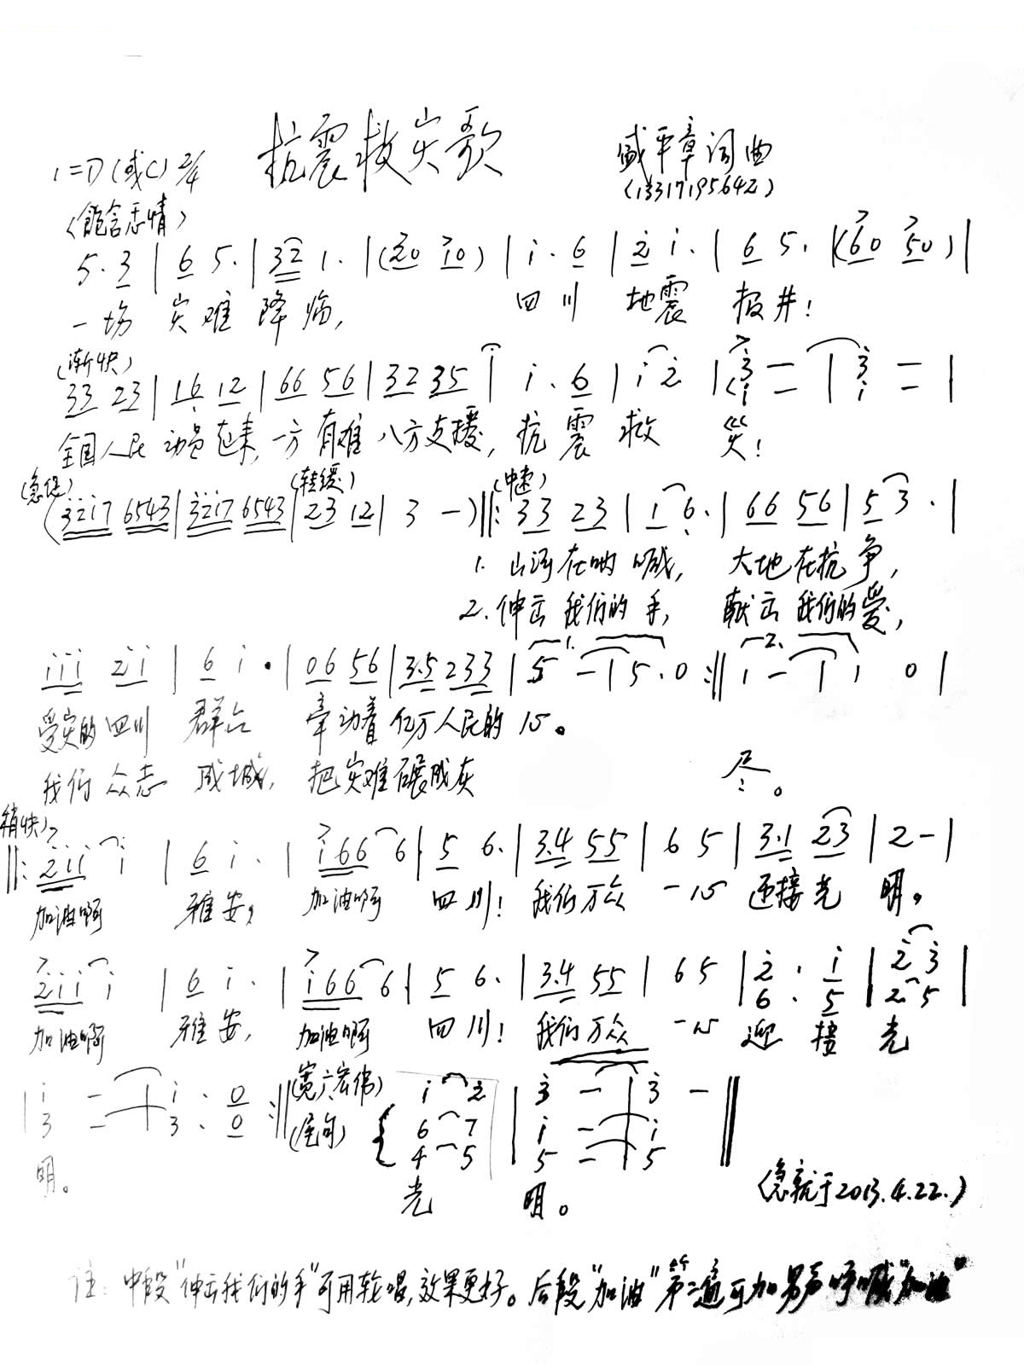 抗震救灾歌
盛平章词曲
1=D(或C) 2/4
(13317195642)
(饱含悲情)
5·3 | 6 5· | 32 1· | (20 10) | i·6 | 2 i· | 6 5· | (60 50) |
一场 灾难 降临, 四川 地震 报井!
(渐快)
33 23 | 16 12 | 66 56 | 32 35 | i·6 | i 2 | 3 — | 3 — |
i — | i — |
全国人民 动员起来, 一方有难 八方支援, 抗震救 灾!
(急促) (转缓) (中速)
(32i7 6543 | 32i7 6543 | 23 12 | 3 —) ‖: 33 23 | 1 6· | 66 56 | 5 3· |
1. 山河在呐喊, 大地在抗争,
2. 伸出我们的手, 献出我们的爱,
iii 2i | 6 i· | 06 56 | 3·5 233 | 5 — | 5·0 :‖ i — | i 0 |
受灾的四川 群众 牵动着亿万人民的 心。
我们众志 成城, 把灾难碾成灰 尽。
(稍快)
‖: 2ii i | 6 i· | i66 6 | 5 6· | 3·4 55 | 6 5 | 3·1 23 | 2 — |
加油啊 雅安, 加油啊 四川! 我们万众 一心 迎接光 明。
2ii i | 6 i· | i66 6 | 5 6· | 3·4 55 | 6 5 | 2 · i | 2 3 |
6 · 5 | 2 5 |
加油啊 雅安, 加油啊 四川! 我们万众 一心 迎 接 光
| i — | i · 0 :‖ (宽广宏伟) i 2 | 3 — | 3 — ‖
3 — | 3 · 0 (尾句) 6 7 | i — | i
4 5 | 5 — | 5
明。 光 明。
(急就于2013.4.22.)
注: 中段"伸出我们的手"可用轮唱,效果更好。后段"加油"第二遍可加男声呼喊"加油"